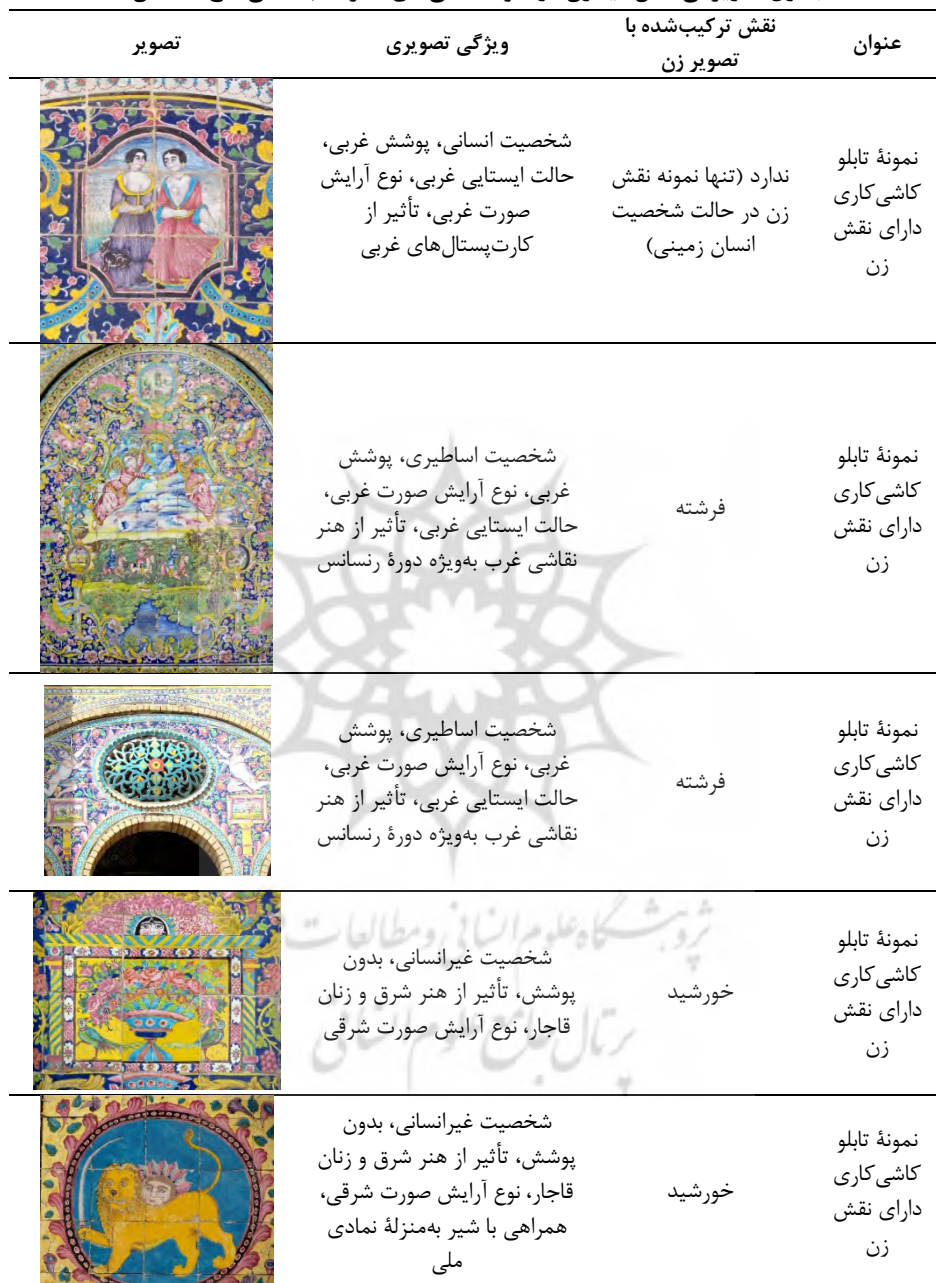 عنوان
نقش ترکیب‌شده با
تصویر زن
ویژگی تصویری
تصویر
نمونۀ تابلو
کاشی‌کاری
دارای نقش
زن
ندارد (تنها نمونه نقش
زن در حالت شخصیت
انسان زمینی)
شخصیت انسانی، پوشش غربی،
حالت ایستایی غربی، نوع آرایش
صورت غربی، تأثیر از
کارت‌پستال‌های غربی
نمونۀ تابلو
کاشی‌کاری
دارای نقش
زن
فرشته
شخصیت اساطیری، پوشش
غربی، نوع آرایش صورت غربی،
حالت ایستایی غربی، تأثیر از هنر
نقاشی غرب به‌ویژه دورۀ رنسانس
نمونۀ تابلو
کاشی‌کاری
دارای نقش
زن
فرشته
شخصیت اساطیری، پوشش
غربی، نوع آرایش صورت غربی،
حالت ایستایی غربی، تأثیر از هنر
نقاشی غرب به‌ویژه دورۀ رنسانس
نمونۀ تابلو
کاشی‌کاری
دارای نقش
زن
خورشید
شخصیت غیرانسانی، بدون
پوشش، تأثیر از هنر شرق و زنان
قاجار، نوع آرایش صورت شرقی
نمونۀ تابلو
کاشی‌کاری
دارای نقش
زن
خورشید
شخصیت غیرانسانی، بدون
پوشش، تأثیر از هنر شرق و زنان
قاجار، نوع آرایش صورت شرقی،
همراهی با شیر به‌منزلۀ نمادی
ملی
پژوهشگاه علوم انسانی و مطالعات
پرتال جامع علوم انسانی